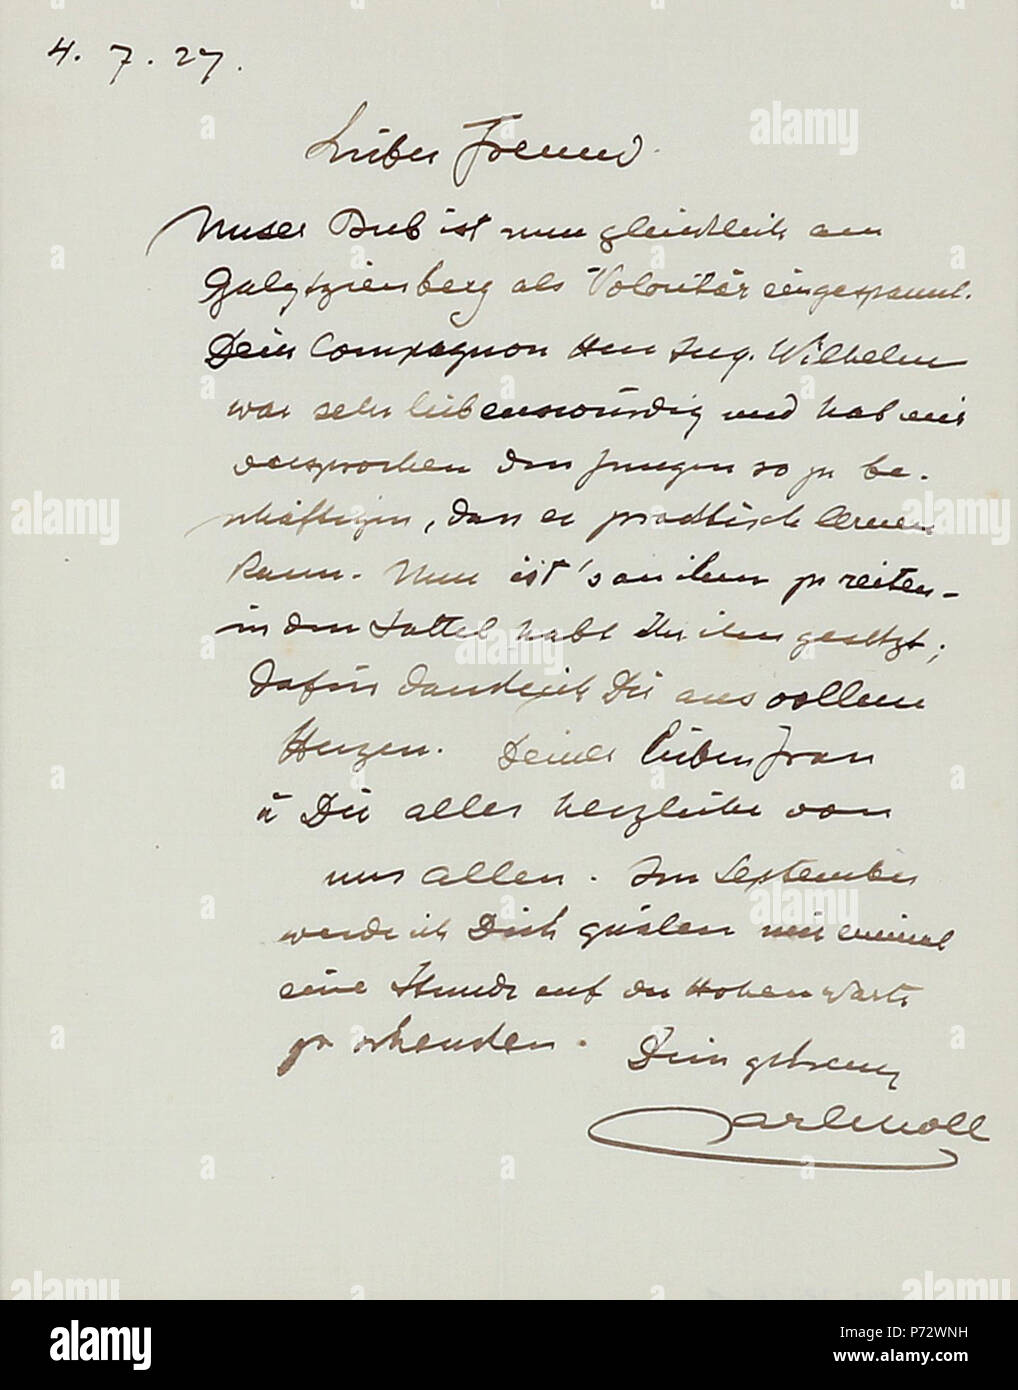 4. 7. 27.
Lieber Freund
Unser Bub ist nun glücklich am
Galytzienberg als Volontär eingespannt.
Dein Compagnon Herr Ing. Wilhelm
war sehr liebenswürdig und hat mir
versprochen den Jungen so zu be-
schäftigen, dass er praktisch lernen
kann. Nun ist's an ihm zu reiten -
in den Sattel habt Ihr ihn gesetzt;
dafür danke ich Dir aus vollem
Herzen. Deiner lieben Frau
u Dir alles herzliche von
uns allen. Im September
werde ich Dich quälen mir einmal
eine Stunde auf der Hohen Warte
zu schenken. Dein getreuer
Carl Moll
alamy
a
alamy
Image ID: P7ZWNH
www.alamy.com